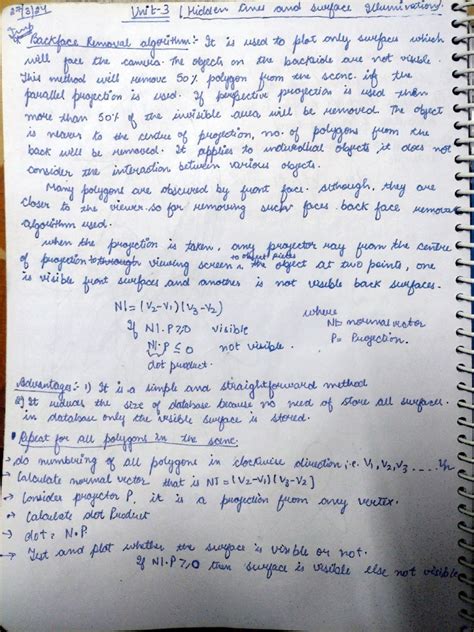 22/3/24 Unit-3 (Hidden lines and surface Illumination)
Imp
Backface Removal algorithm:- It is used to plot only surfaces which
will face the camera. The objects on the backside are not visible.
This method will remove 50% polygon from the scene. if the
parallel projection is used. If perspective projection is used then
more than 50% of the invisible area will be removed. The object
is nearer to the centre of projection, no. of polygons from the
back will be removed. It applies to individual objects it does not
consider the interaction between various objects.
Many polygons are obscured by front face. although, they are
closer to the viewer. so for removing such faces. back face removal
algorithm used.
when the projection is taken, any projector ray from the centre
of projection through viewing screen to object pieces the object at two points, one
is visible front surfaces and another is not visible back surfaces.
N1 = (V2-V1)(V3-V2) where
If N1.P≥0 visible N1= normal vector
N1.P ≤ 0 not visible. P= Projection.
dot product.
Advantage:- 1) It is a simple and straightforward method
2) It reduces the size of database because no need of store all surfaces.
in database only the visible surface is stored.
Repeat for all polygons in the scene.
→ do numbering of all polygons in clockwise direction, i.e. V1, V2, V3 ....
→ Calculate normal vector that is N1 = (V2-V1)(V3-V2)
→ Consider projector P, it is a projection from any vertex.
→ Calculate dot Product
→ dot = N.P
→ Test and plot whether the surface is visible or not.
If N1.P≥0 then surface is visible else not visible